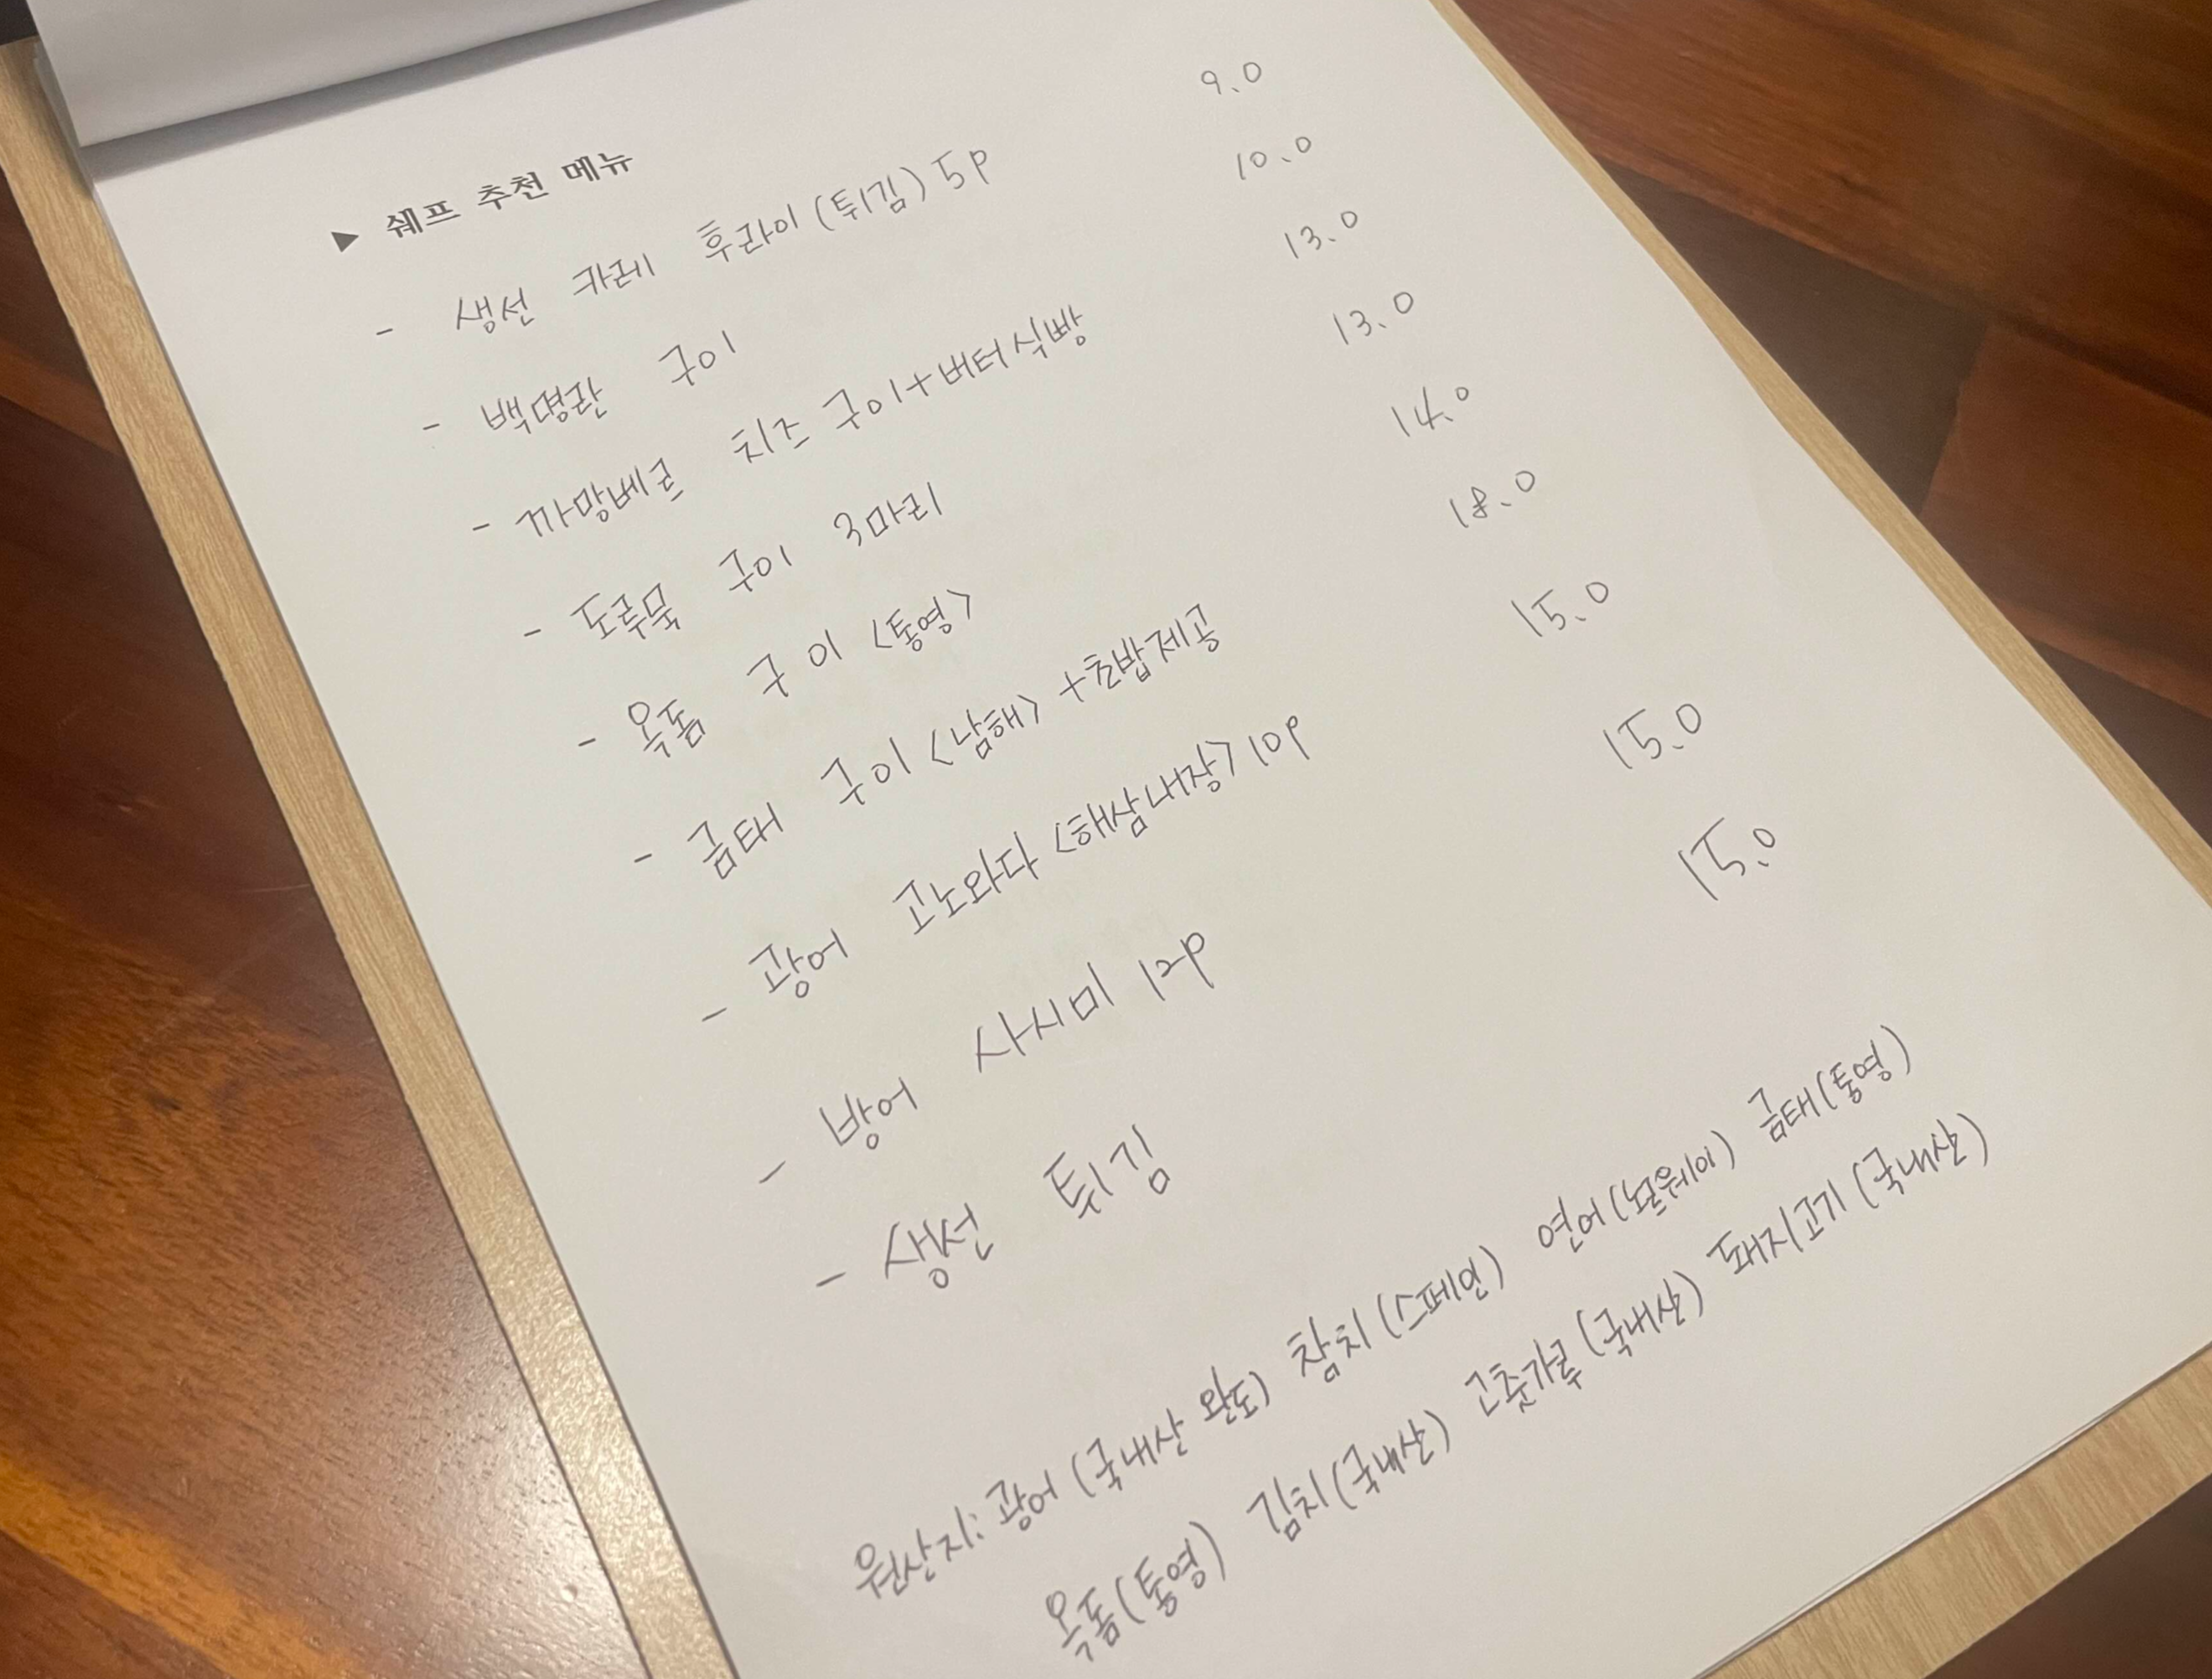 ▶ 쉐프 추천 메뉴
- 생선 카레 후라이(튀김) 5P 9.0
- 백명란 구이 10.0
- 까망베르 치즈 구이+버터식빵 13.0
- 도루묵 구이 3마리 13.0
- 옥돔 구이 <통영> 14.0
- 금태 구이 <남해> +초밥제공 18.0
- 광어 고노와다 <해삼내장> 10P 15.0
- 방어 사시미 12P 15.0
- 생선 튀김 15.0
원산지: 광어 (국내산 완도) 참치(스페인) 연어(노르웨이) 금태(통영)
옥돔(통영) 김치(국내산) 고춧가루(국내산) 돼지고기(국내산)